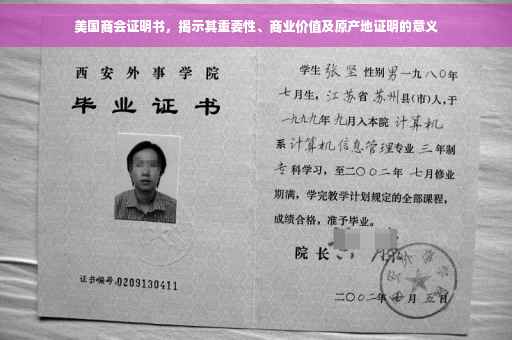 美国商会证明书，揭示其重要性、商业价值及原产地证明的意义
西安外事学院
毕业证书
证书编号:0209130411
学生 张坚 性别 男 一九八〇年
七月生，江苏省 苏州县(市)人，于
一九九九年 九月入本院 计算机
系 计算机信息管理专业 三 年制
专科学习，至二〇〇二年 七月修业
期满，学完教学计划规定的全部课程，
成绩合格，准予毕业。
院长
二〇〇二年 七 月 五 日